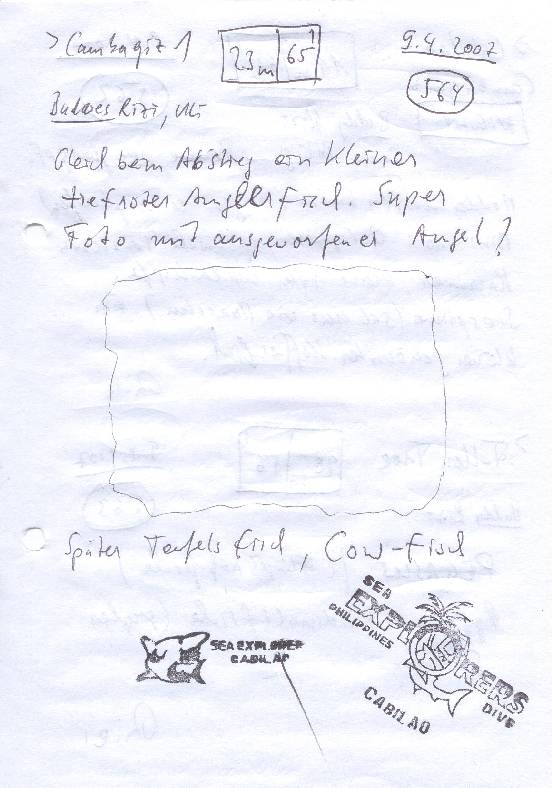 > Cambaquiz 1 23m 65' 9.4.2007
564
Buddies Rizi, Uli
Gleich beim Abstieg ein kleiner
tiefroter Anglerfisch. Super
Foto mit ausgeworfener Angel!
Später Teufelsfisch, Cow-Fisch
SEA EXPLORER
CABILAO
SEA
EXPLORERS
PHILIPPINES
DIVE
CABILAO